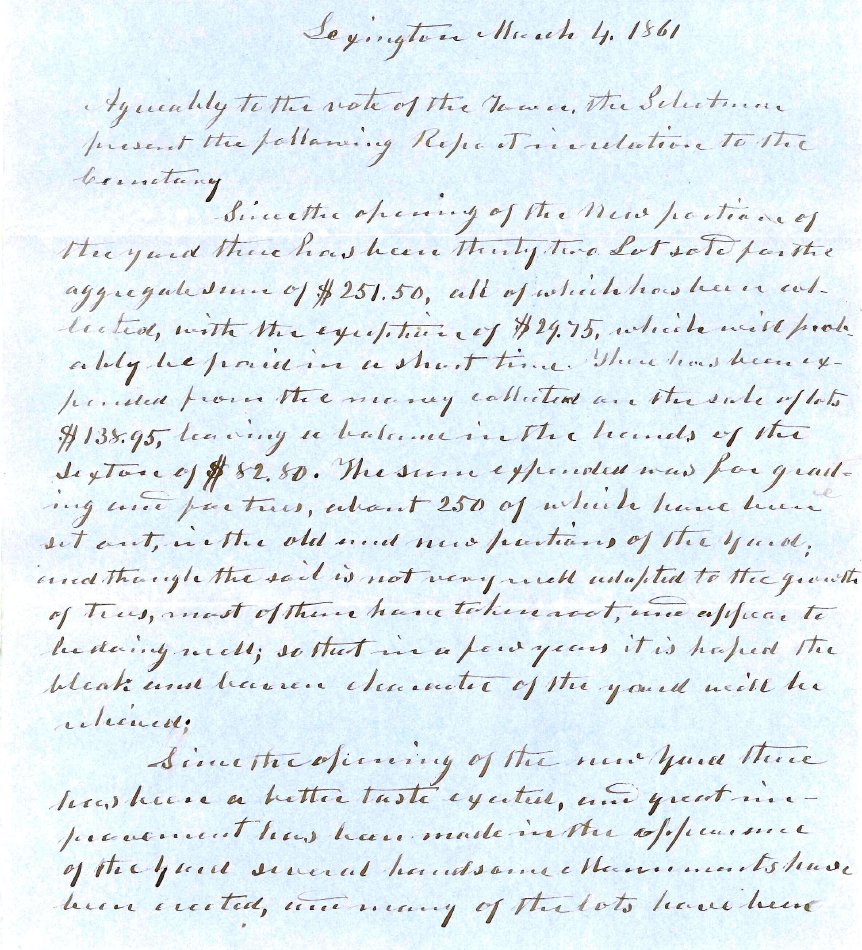 Lexington March 4. 1861
Agreeably to the vote of the Town, the Selectmen
present the following Report in relation to the
Cemetary
Since the opening of the New portion of
the yard there has been thirty two Lot sold for the
aggregate sum of $251.50, all of which has been col-
lected, with the exception of $29.75, which will prob-
ably be paid in a short time. There has been ex-
pended from the money collected on the sale of lots
$138.95, leaving a balance in the hands of the
Sexton of $82.80. The sum expended was for grad-
ing and for trees, about 250 of which have been
set out, in the old and new portions of the Yard;
and though the soil is not very well adapted to the growth
of trees, most of them have taken root, and appear to
be doing well; so that in a few years it is hoped the
bleak and barren character of the yard will be
relieved;
Since the opening of the new Yard there
has been a better taste exerted, and great im-
provement has been made in the appearance
of the Yard several handsome Monuments have
been erected, and many of the lots have been